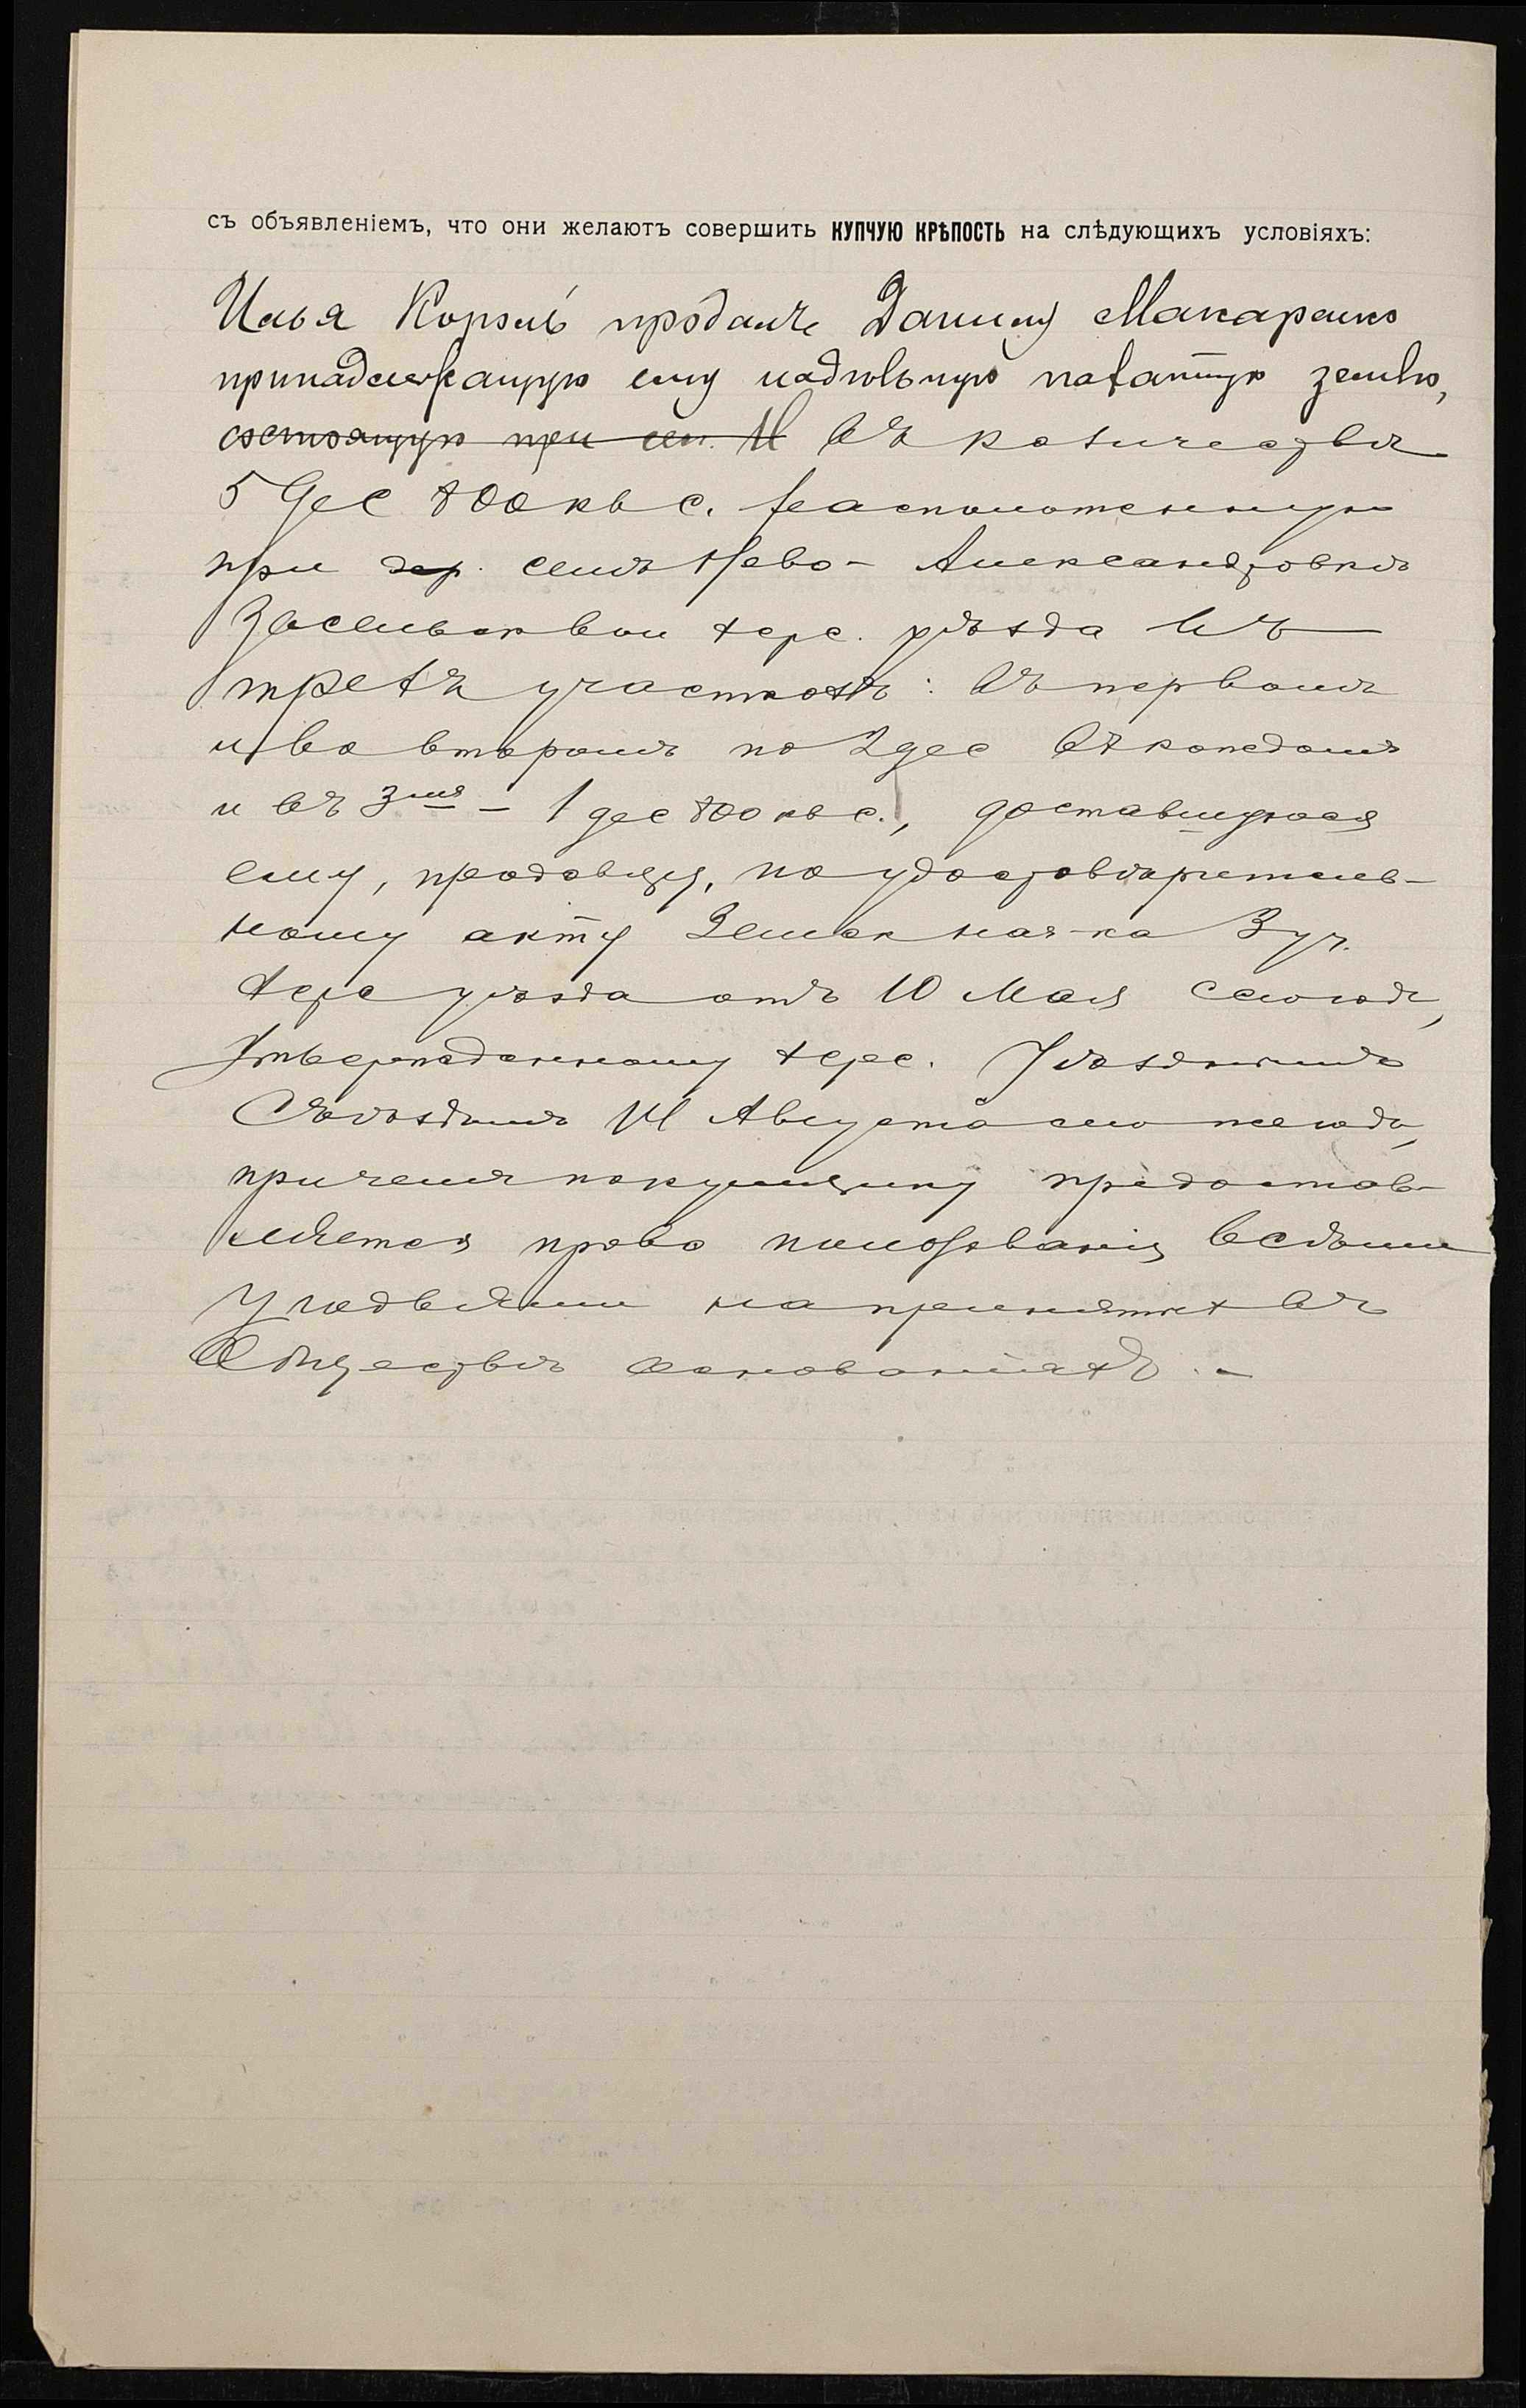 съ объявленіемъ, что они желаютъ совершить КУПЧУЮ КРѢПОСТЬ на слѣдующихъ условіяхъ:
Илья Король продалъ Данилу Макаренко
принадлежащую ему надѣльную пахатную землю,
состоящую при сел. Н въ количествѣ
5 дес 800 кв с. расположенную
при дер. селѣ Ново-Александровкѣ
Херс. уѣзда въ
трехъ участкахъ: въ первомъ
и во второмъ по 2 дес въ каждомъ
и въ 3мъ – 1 дес 800 кв с., доставшуюся
ему, продавцу, по удостовѣритель-
ному акту Земск нач-ка 3 уч.
Херс уѣзда отъ 10 Мая сего года,
утвержденному Херс. Уѣзднымъ
Съѣздомъ 14 Августа сего же года,
причемъ покупщику предостав-
ляется право пользованія всѣми
угодьями на принятыхъ въ
Обществѣ основаніяхъ. –